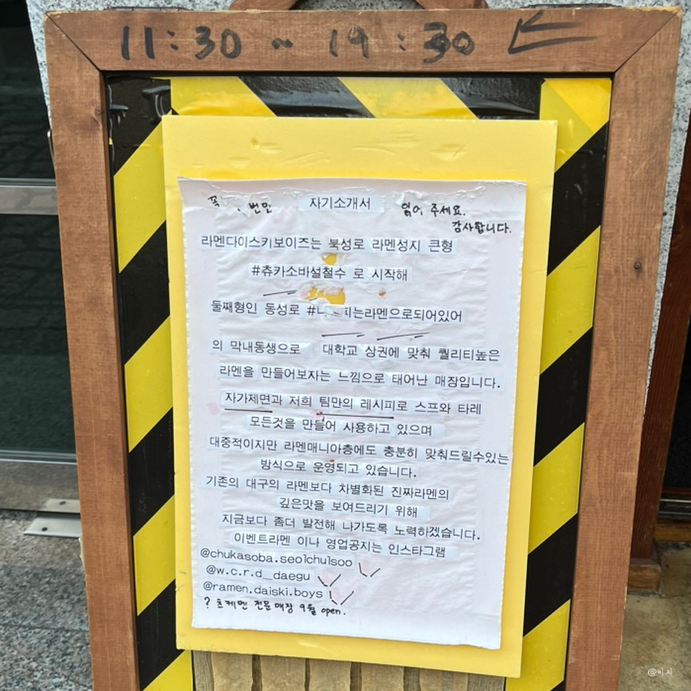 11:30 ~ 19:30
꼭 번만 자기소개서 읽어 주세요.
감사합니다.
라멘다이스키보이즈는 북성로 라멘성지 큰형
#츄카소바설철수 로 시작해
둘째형인 동성로 라멘으로되어있어
의 막내동생으로 대학교 상권에 맞춰 퀄리티높은
라멘을 만들어보자는 느낌으로 태어난 매장입니다.
자가제면과 저희 팀만의 레시피로 스프와 타레
모든것을 만들어 사용하고 있으며
대중적이지만 라멘매니아층에도 충분히 맞춰드릴수있는
방식으로 운영되고 있습니다.
기존의 대구의 라멘보다 차별화된 진짜라멘의
깊은맛을 보여드리기 위해
지금보다 좀더 발전해 나가도록 노력하겠습니다.
이벤트라멘 이나 영업공지는 인스타그램
@chukasoba.seolchulsoo
@w.c.r.d__daegu
@ramen.daiski.boys
? 츠케멘 전문매장 9월 open.